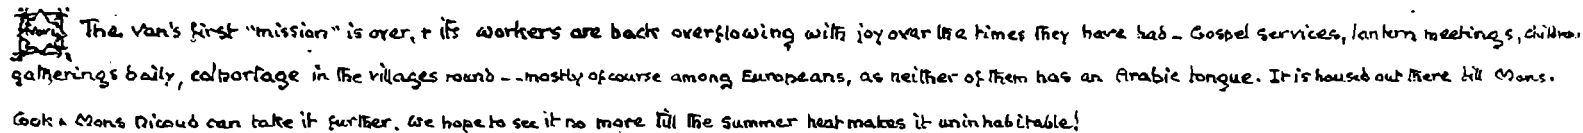 The van's first "mission" is over, + its workers are back overflowing with joy over the times they have had - Gospel services, lantern meetings, children
gatherings daily, colportage in the villages round - - mostly of course among Europeans, as neither of them has an Arabic tongue. It is housed out there till Mons.
Cook & Mons Nicoud can take it further. We hope to see it no more till the summer heat makes it uninhabitable!